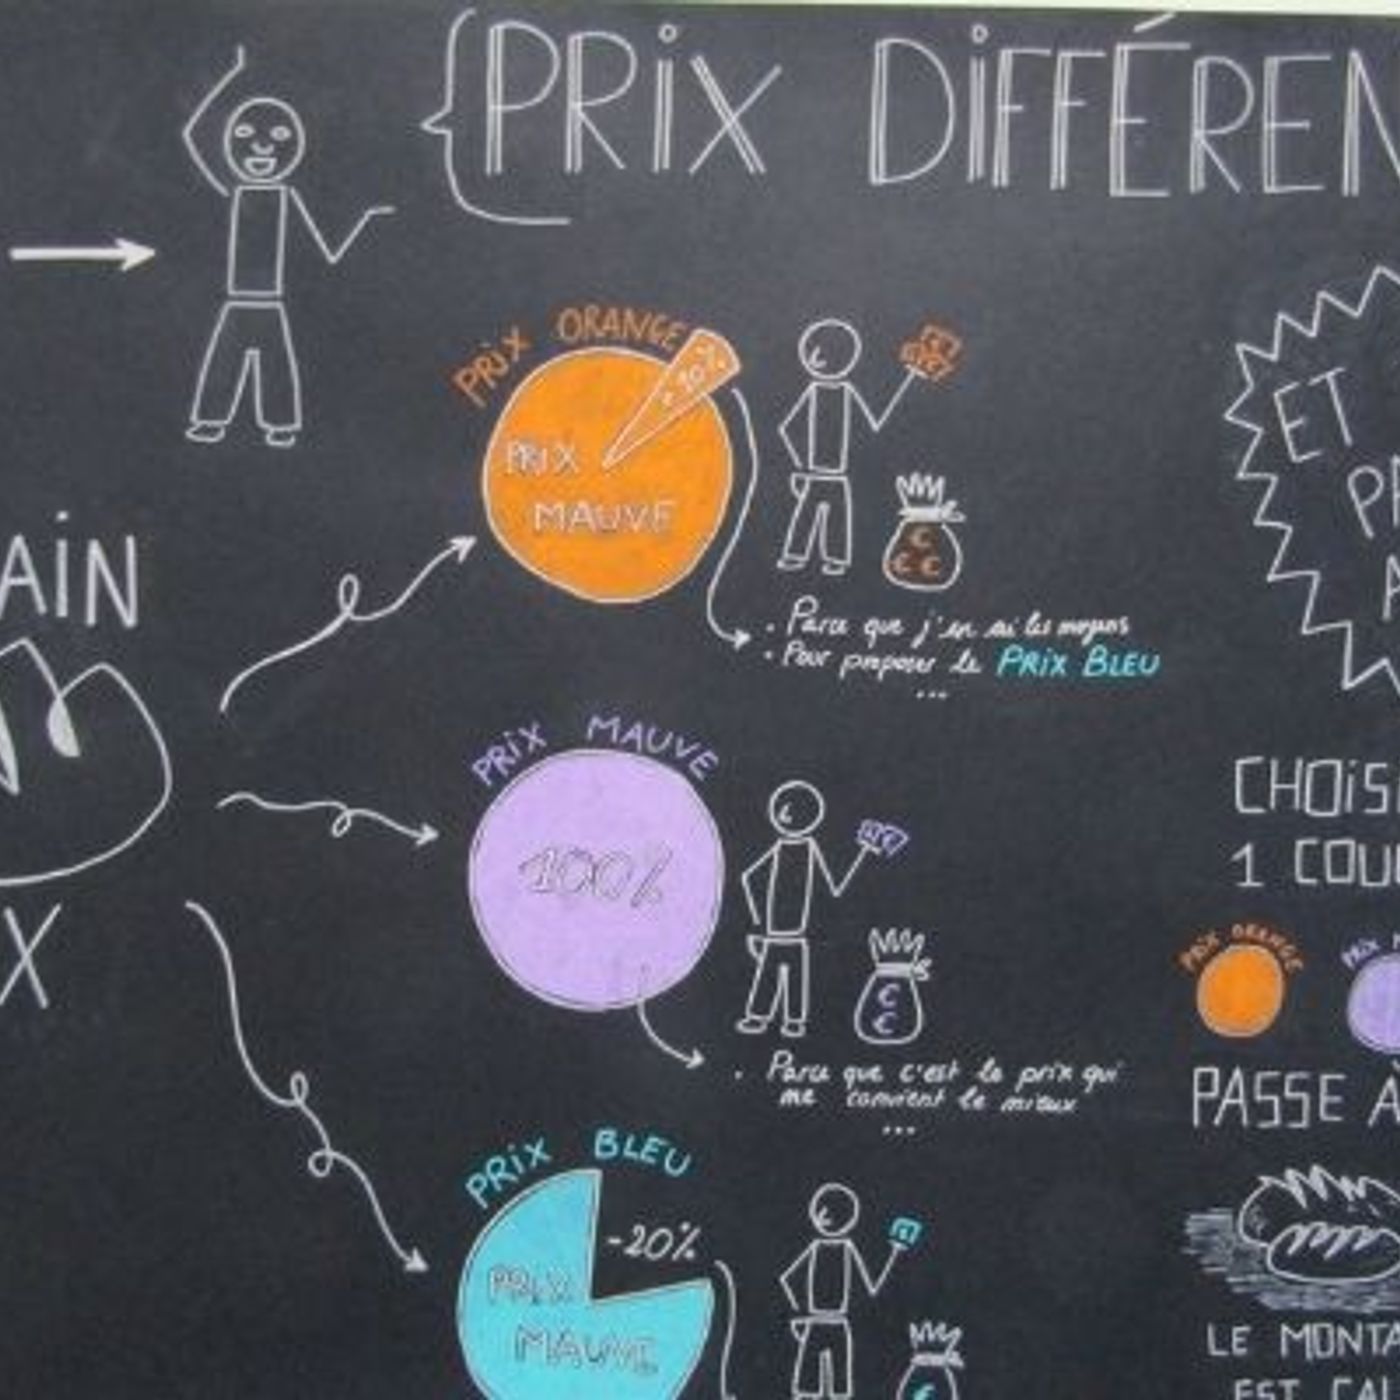 PRIX DIFFÉREN
PRIX ORANGE
PRIX
MAUVE
. Parce que j'en ai les moyens
. Pour proposer le PRIX BLEU
...
AIN
X
PRIX MAUVE
100%
. Parce que c'est le prix qui
me convient le mieux
...
PRIX BLEU
-20%
PRIX
MAUVE
ET
CHOIS
1 COU
PRIX ORANGE
PRIX
PASSE À
LE MONTA
EST CAL